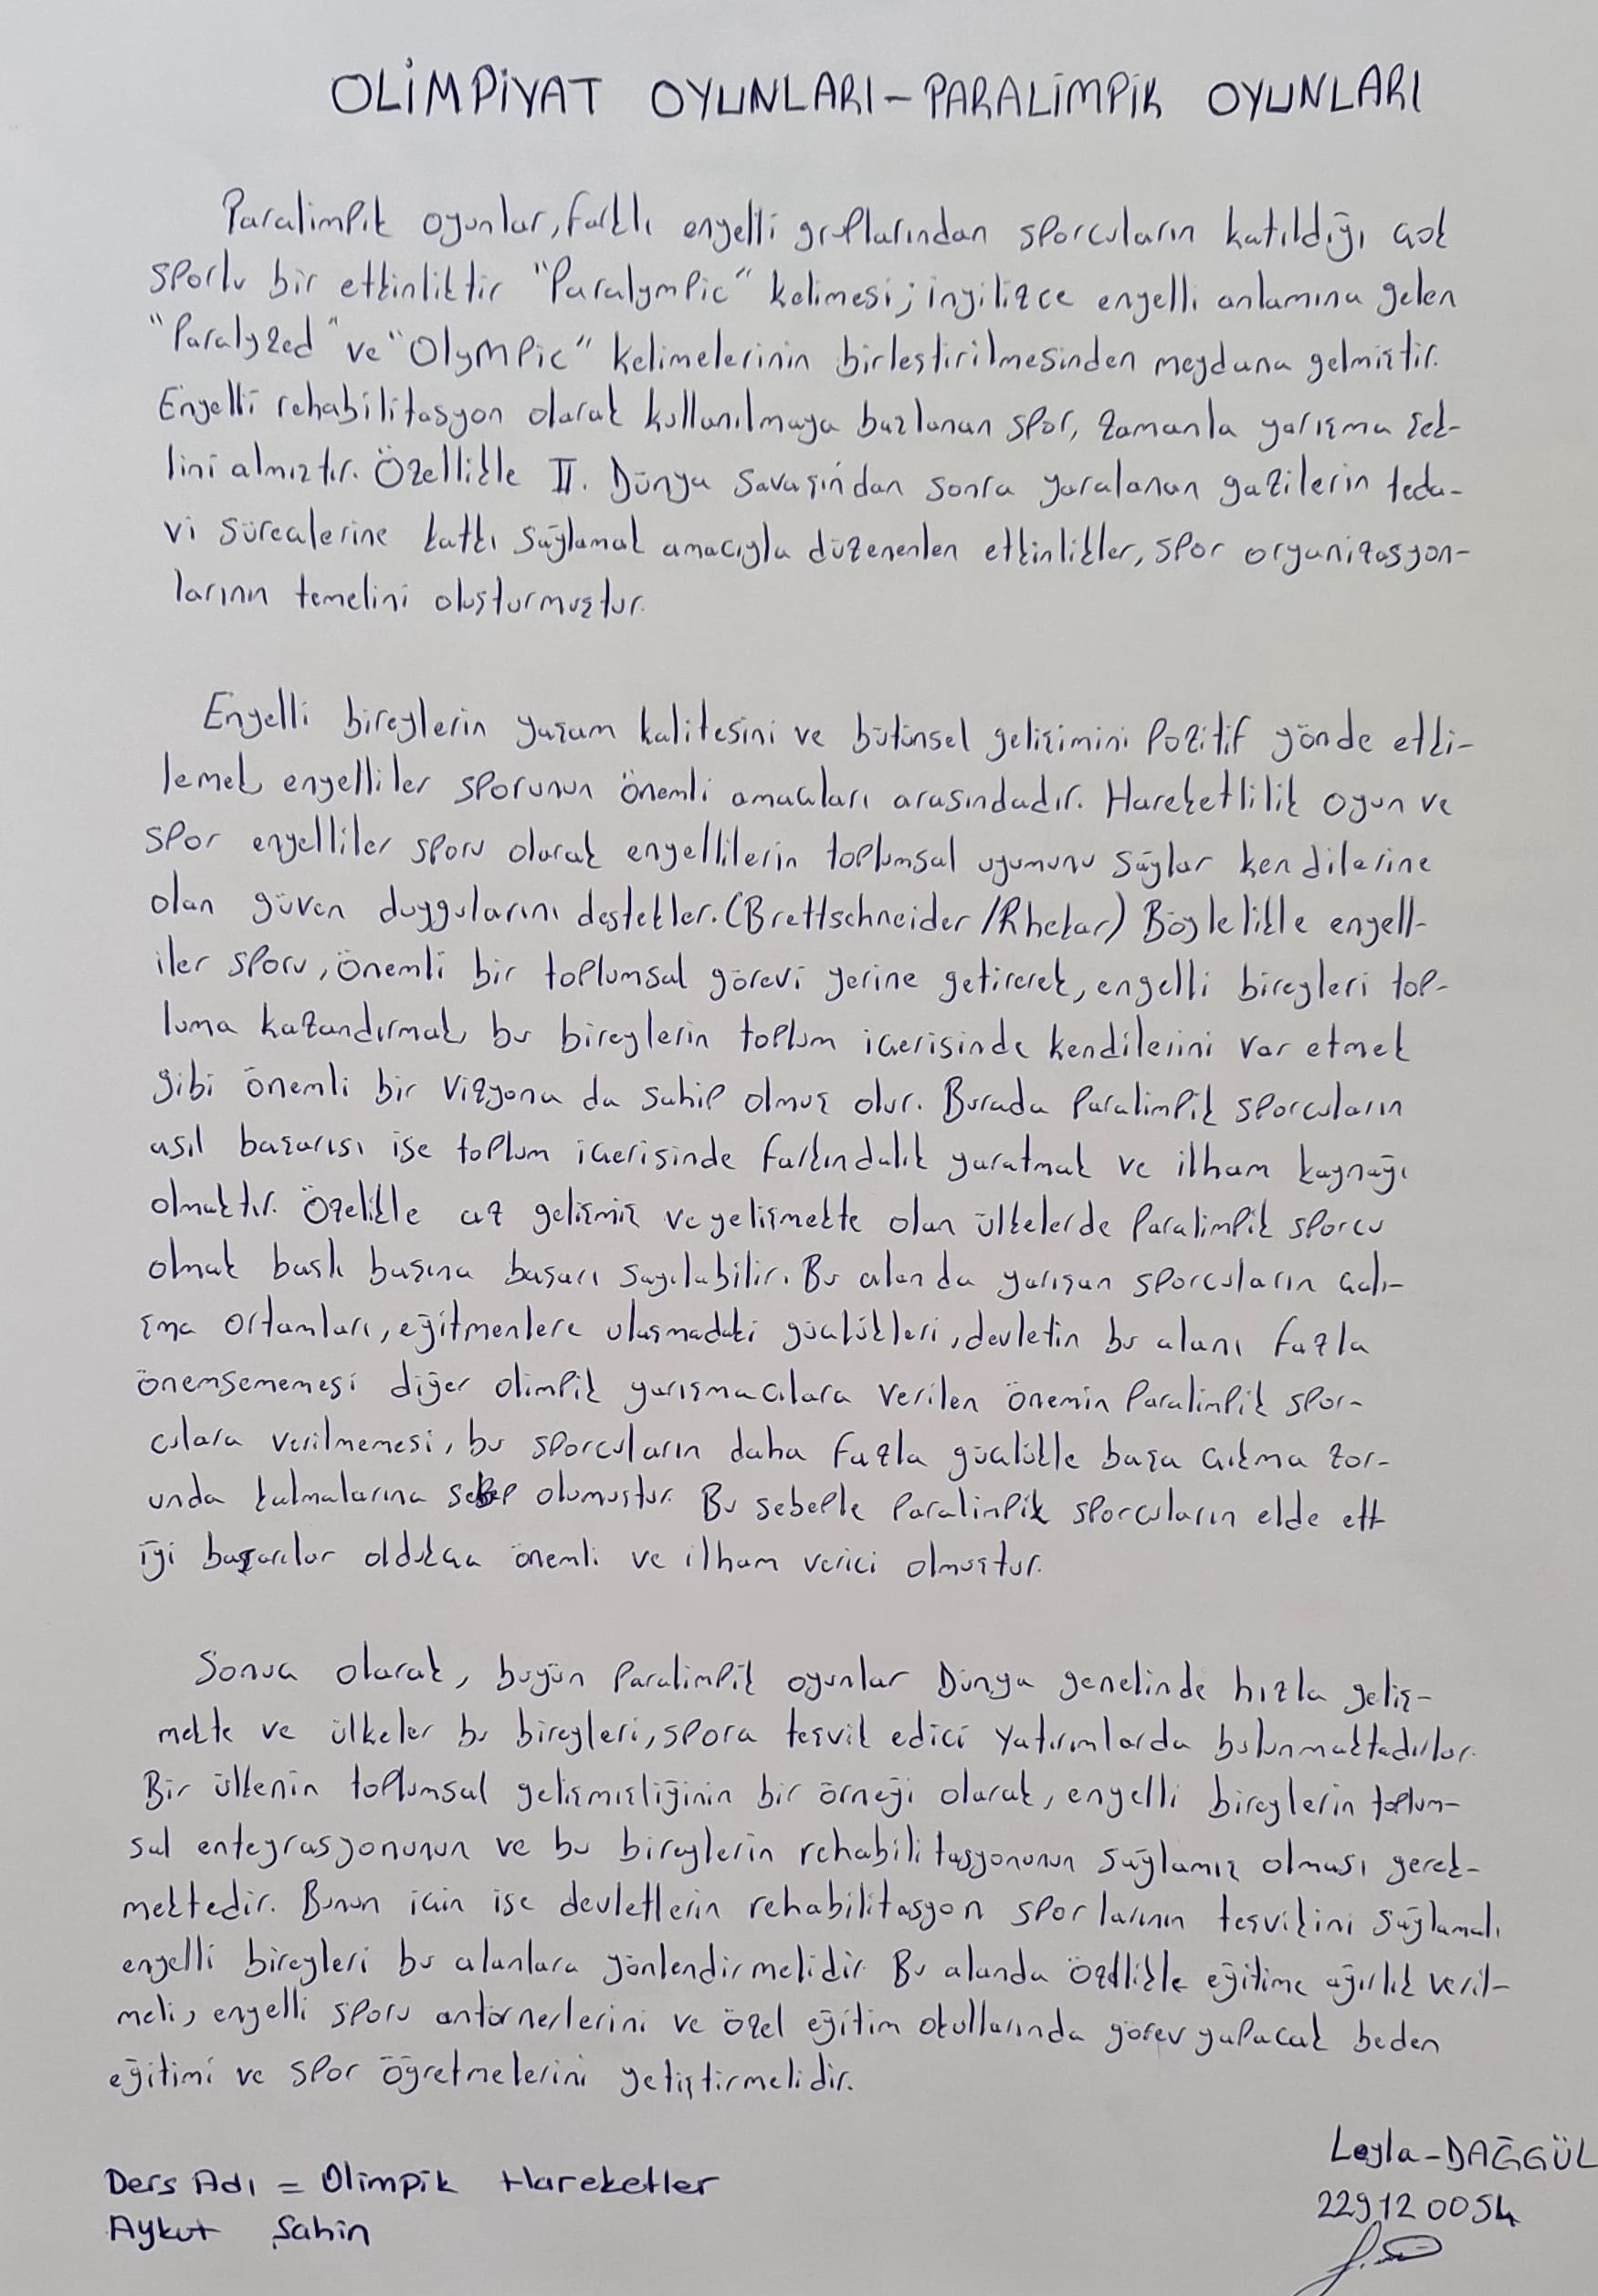 OLİMPİYAT OYUNLARI-PARALİMPİK OYUNLARI
Paralimpik oyunlar, farklı engelli gruplarından sporcuların katıldığı çok
sporlu bir etkinliktir "Paralympic" kelimesi; ingilizce engelli anlamına gelen
"Paralyzed" ve "Olympic" kelimelerinin birleştirilmesinden meydana gelmiştir.
Engelli rehabilitasyon olarak kullanılmaya başlanan spor, zamanla yarışma şek-
lini almıştır. Özellikle II. Dünya Savaşın'dan sonra yaralanan gazilerin teda-
vi süreçlerine katkı sağlamak amacıyla düzenenlen etkinlikler, spor organizasyon-
larının temelini oluşturmuştur.
Engelli bireylerin yaşam kalitesini ve bütünsel gelişimini pozitif yönde etki-
lemek engelliler sporunun önemli amaçları arasındadır. Hareketlilik oyun ve
spor engelliler sporu olarak engellilerin toplumsal uyumunu sağlar kendilerine
olan güven duygularını destekler. (Brettschneider/Rhekar) Böylelikle engell-
iler sporu, önemli bir toplumsal görevi yerine getirerek, engelli bireyleri top-
luma kazandırmak bu bireylerin toplum içerisinde kendilerini var etmek
gibi önemli bir vizyona da sahip olmuş olur. Burada paralimpik sporcuların
asıl başarısı ise toplum içerisinde farkındalık yaratmak ve ilham kaynağı
olmaktır. Özelikle az gelişmiş ve gelişmekte olan ülkelerde paralimpik sporcu
olmak başlı başına başarı sayılabilir. Bu alan da yarışan sporcuların çalı-
şma ortamları, eğitmenlere ulaşmadaki güçlükleri, devletin bu alanı fazla
önemsememesi diğer olimpik yarışmacılara verilen önemin paralimpik spor-
culara verilmemesi, bu sporcuların daha fazla güçlükle başa çıkma zor-
unda kalmalarına sebep olumuştur. Bu sebeple paralimpik sporcuların elde ett
iği başarılar oldukça önemli ve ilham verici olmuştur.
Sonuç olarak, bugün paralimpik oyunlar Dünya genelinde hızla geliş-
mekte ve ülkeler bu bireyleri, spora teşvik edici yatırımlarda bulunmaktadırlar.
Bir ülkenin toplumsal gelişmişliğinin bir örneği olarak, engelli bireylerin toplum-
sal entegrasyonunun ve bu bireylerin rehabilitasyonunun sağlamış olması gerek-
mektedir. Bunun için ise devletlerin rehabilitasyon sporlarının teşvikini sağlamalı
engelli bireyleri bu alanlara yönlendirmelidir. Bu alanda özellikle eğitime ağırlık veril-
meli, engelli sporu antörnerlerini ve özel eğitim okullarında görev yapacak beden
eğitimi ve spor öğretmelerini yetiştirmelidir.
Leyla-DAĞGÜL
Ders Adı = Olimpik Hareketler
229120054
Aykut Şahin